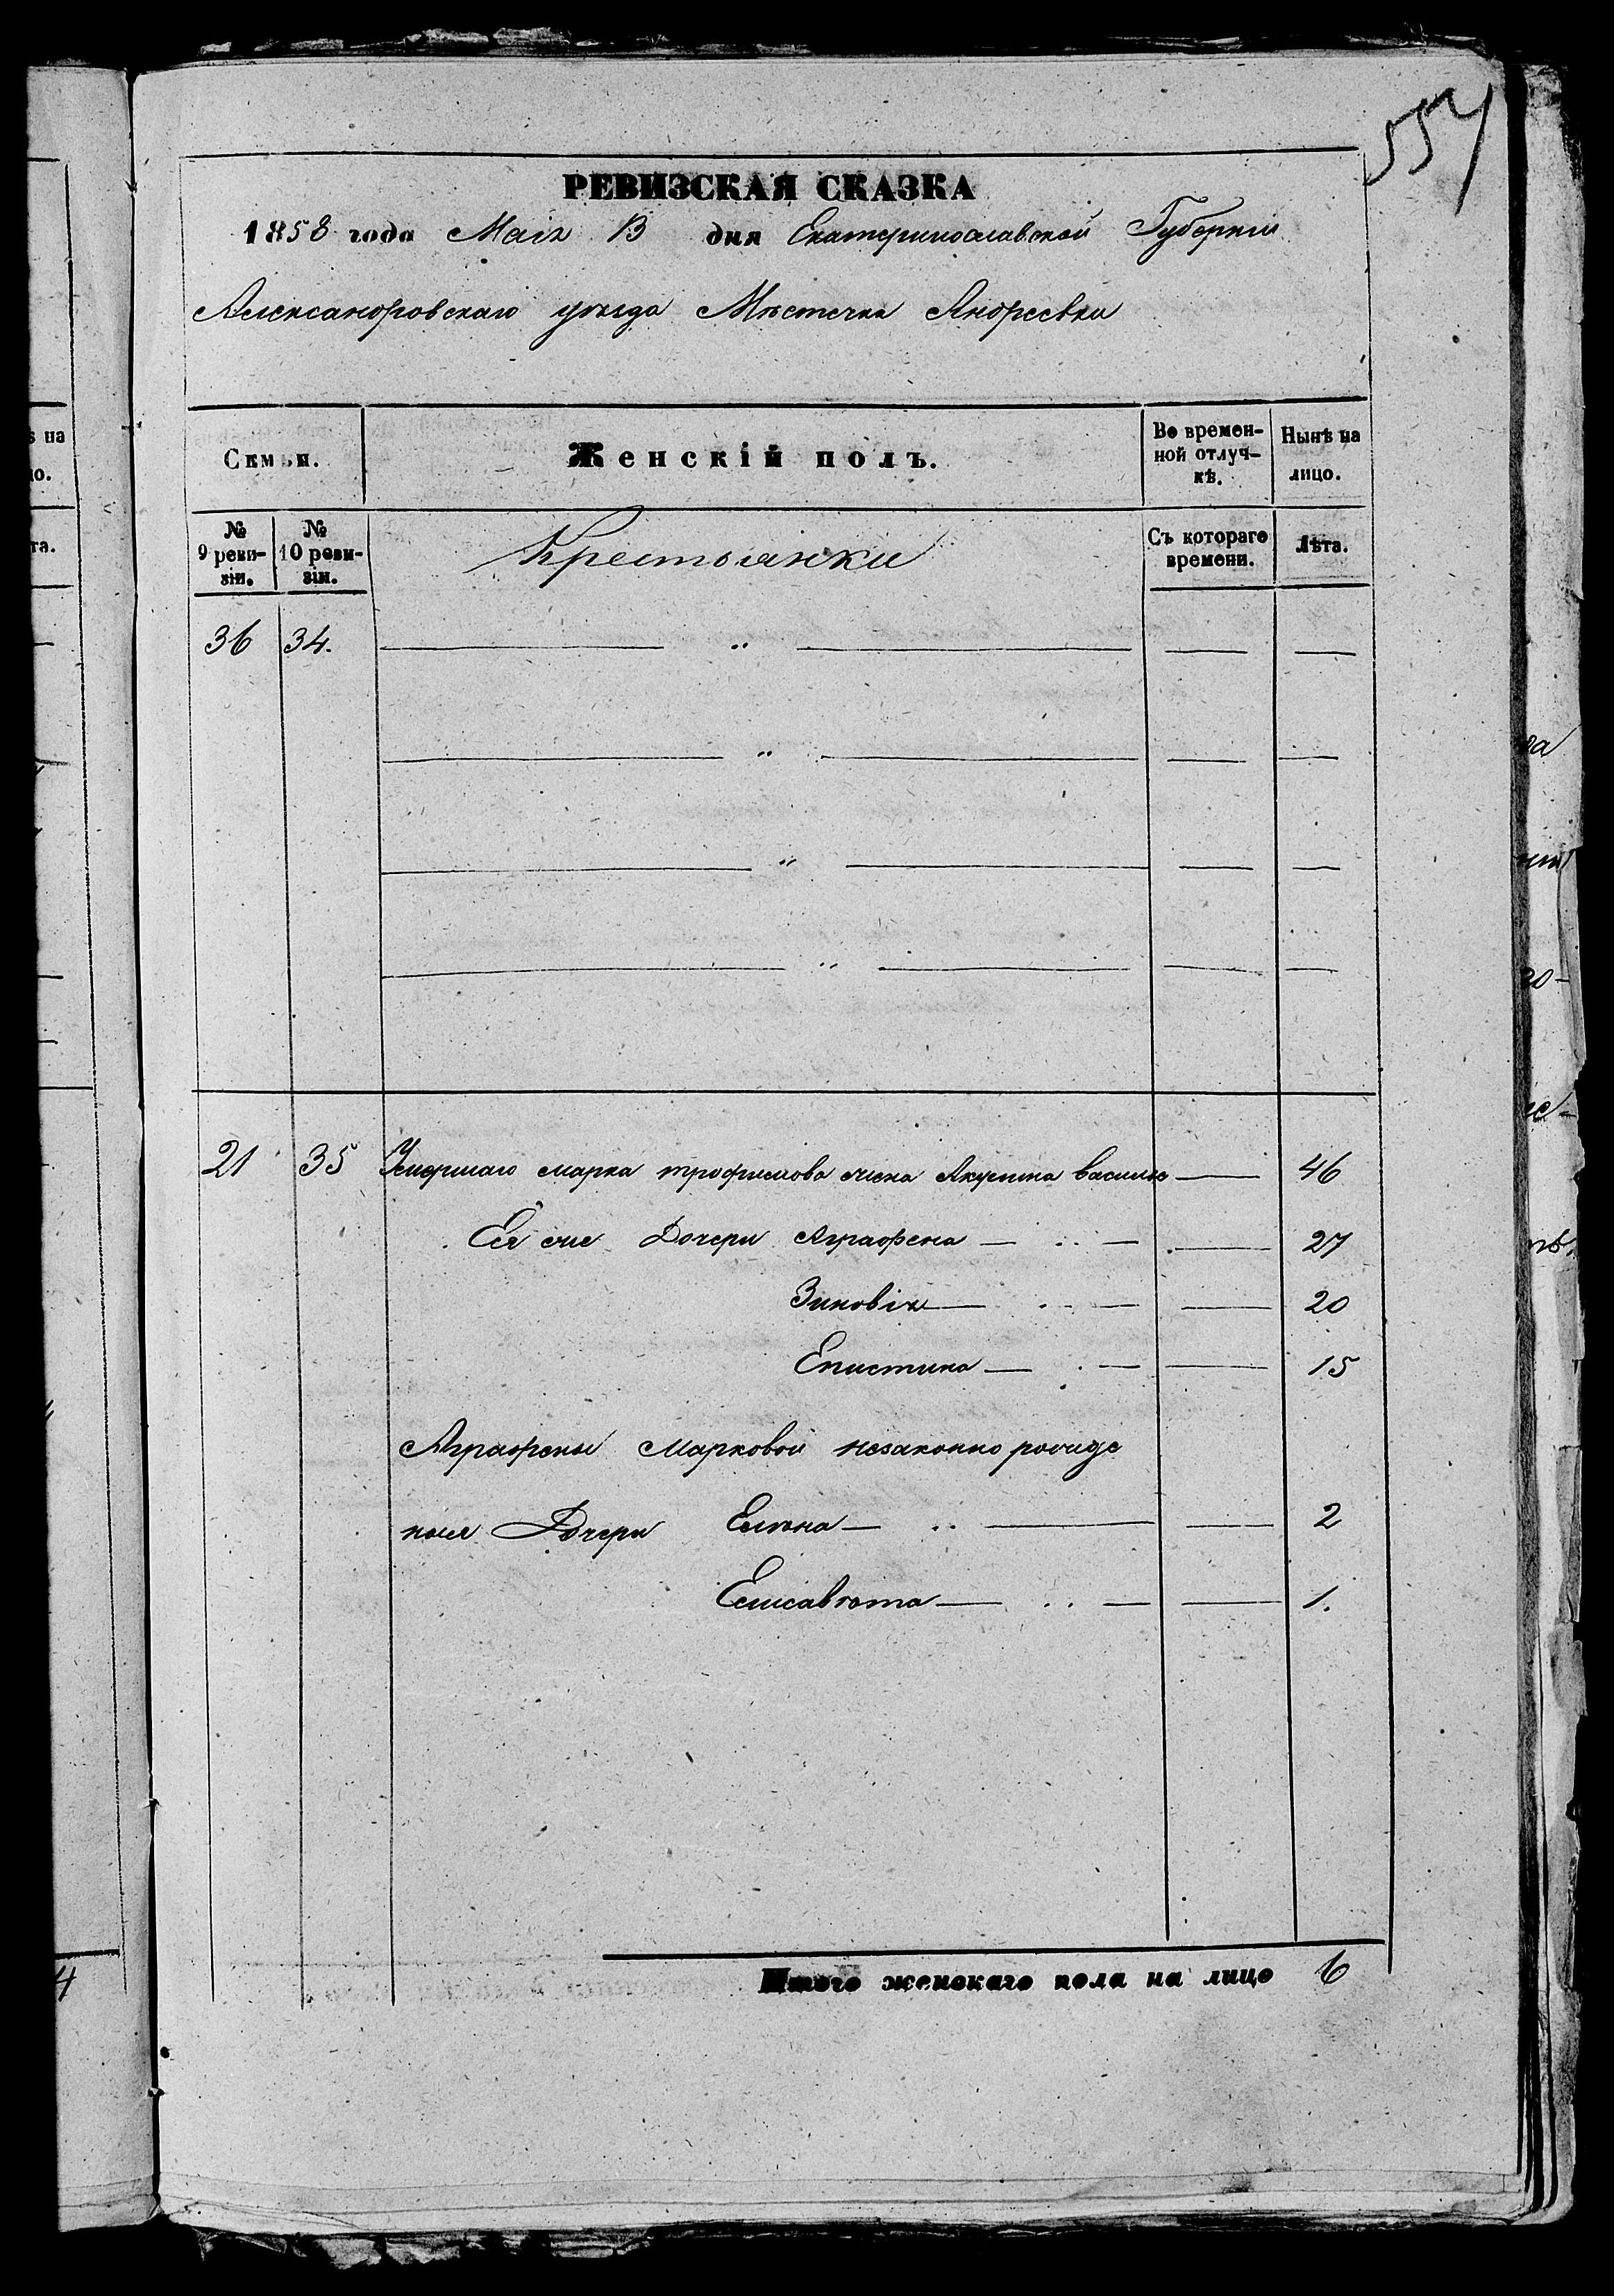 557
РЕВИЗСКАЯ СКАЗКА
1858 года Маія 13 дня Екатеринославской Губерніи
Александровскаго уѣзда Мѣстечка Андреевки
Семьи. Женскій полъ. Во времен-ной отлуч-кѣ. Нынѣ на лицо.
№ 9 реви-зіи. № 10 реви-зіи. Крестьянки Съ котораго времени. Лѣта.
36 34. — " — — —
— " — — —
— " — — —
— " — — —
21 35 Умершаго Марка Трофимова жена Акулина Василье — 46
Ея же Дочери Аграфена — .. — — 27
Зиновія — .. — — 20
Епистина — . — — 15
Аграфены Марковой незаконно рожде
ныя Дочери Елѣна — .. — — 2
Елисавѣта — .. — — 1.
Итого женскаго пола на лицо 6